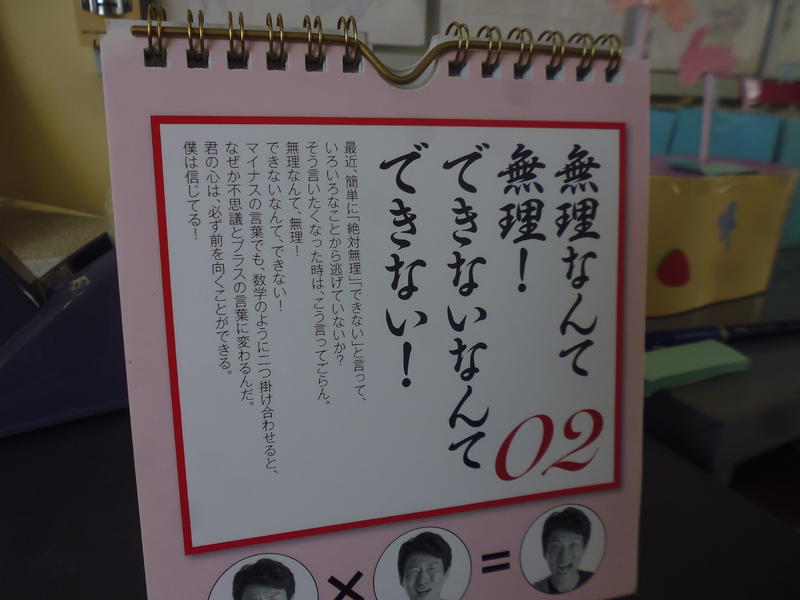 無理なんて
無理！
できないなんて
できない！
02
最近、簡単に「絶対無理」「できない」と言って、
いろいろなことから逃げていないか？
そう言いたくなった時は、こう言ってごらん。
無理なんて、無理！
できないなんて、できない！
マイナスの言葉でも、数学のように二つ掛け合わせると、
なぜか不思議とプラスの言葉に変わるんだ。
君の心は、必ず前を向くことができる。
僕は信じてる！
× =